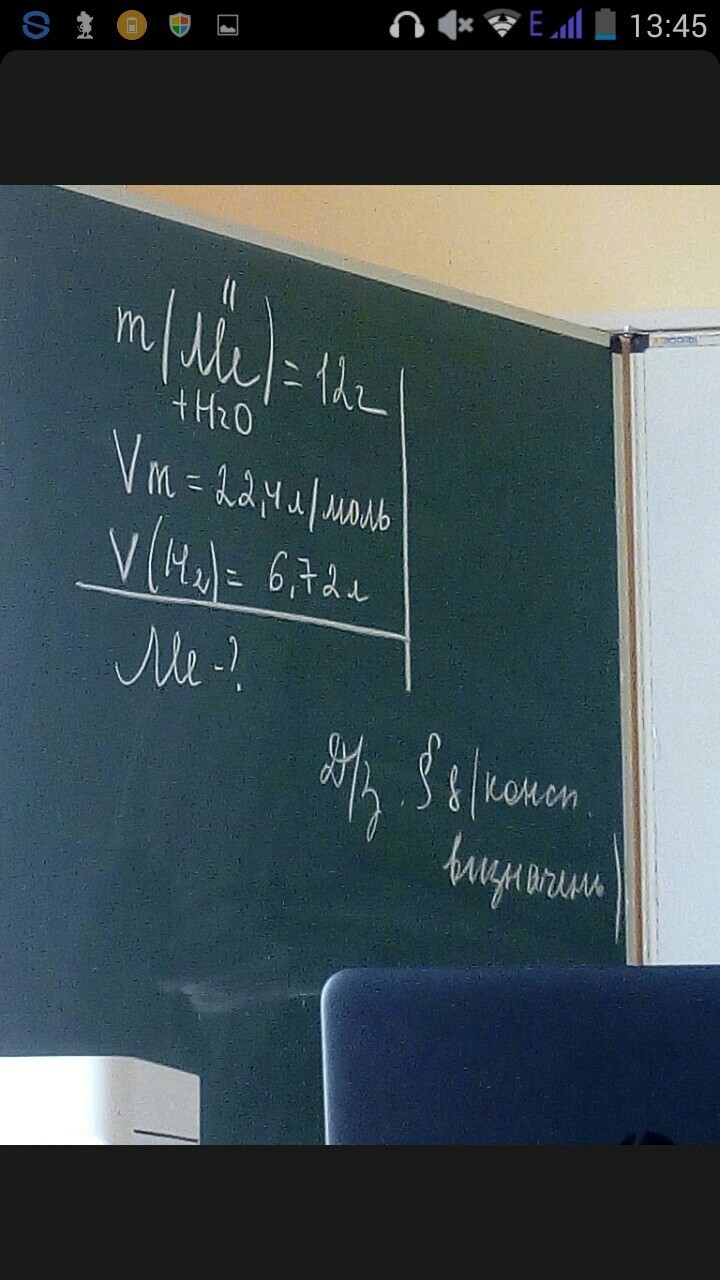 E 13:45
II
m(Me) = 12г
+H2O
Vm = 22,4 л/моль
V(H2) = 6,72 л
Me - ?
Д/з. § 8 (консп.
визначень)